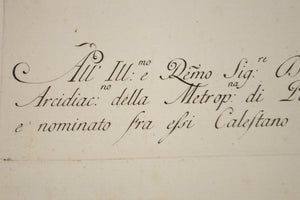 All' Ill:mo e Rẽmo Sig:re
Arcidiac:no della Metrop:na di
e nominato fra essi Calestano